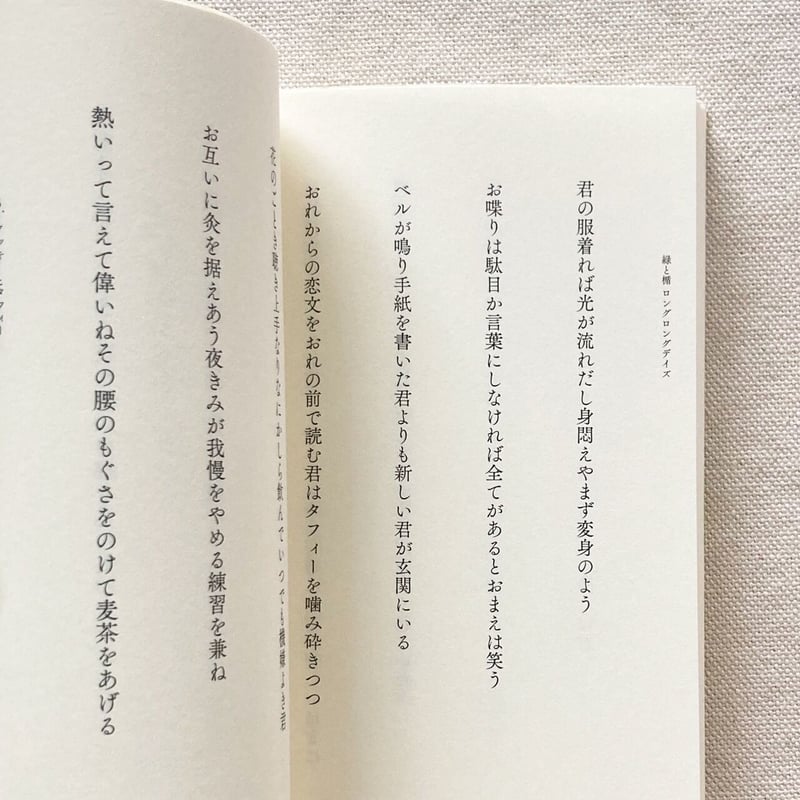 緑と楯 ロングロングデイズ
君の服着れば光が流れだし身悶えやまず変身のよう
お喋りは駄目か言葉にしなければ全てがあるとおまえは笑う
ベルが鳴り手紙を書いた君よりも新しい君が玄関にいる
おれからの恋文をおれの前で読む君はタフィーを噛み砕きつつ
いつでも機嫌よき君
お互いに灸を据えあう夜きみが我慢をやめる練習を兼ね
熱いって言えて偉いねその腰のもぐさをのけて麦茶をあげる